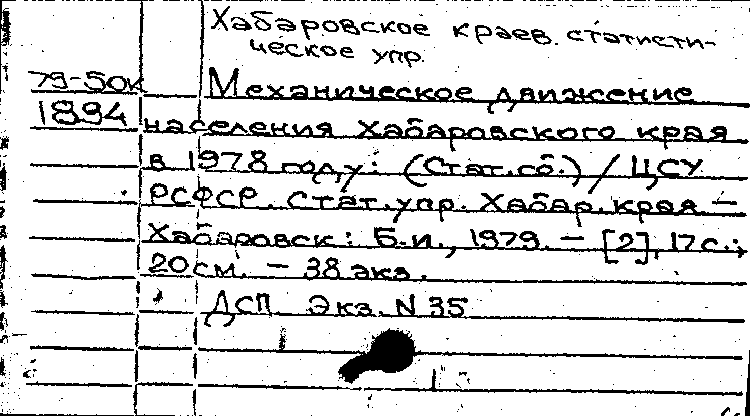 Хабаровское краев. статисти-
ческое упр.
79-50к Механическое движение
1894 населения Хабаровского края
в 1978 году: (Стат.сб.) / ЦСУ
РСФСР. Стат.упр. Хабар.края. –
Хабаровск: Б.и., 1979. – [2], 17с.;
20см. – 38 экз.
ДСП Экз. N 35